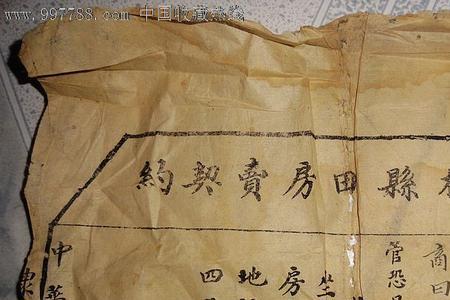 www.997788.com 中国收藏热线
縣田房賣契約
商曰
管恐
坐
房
地
四
中華